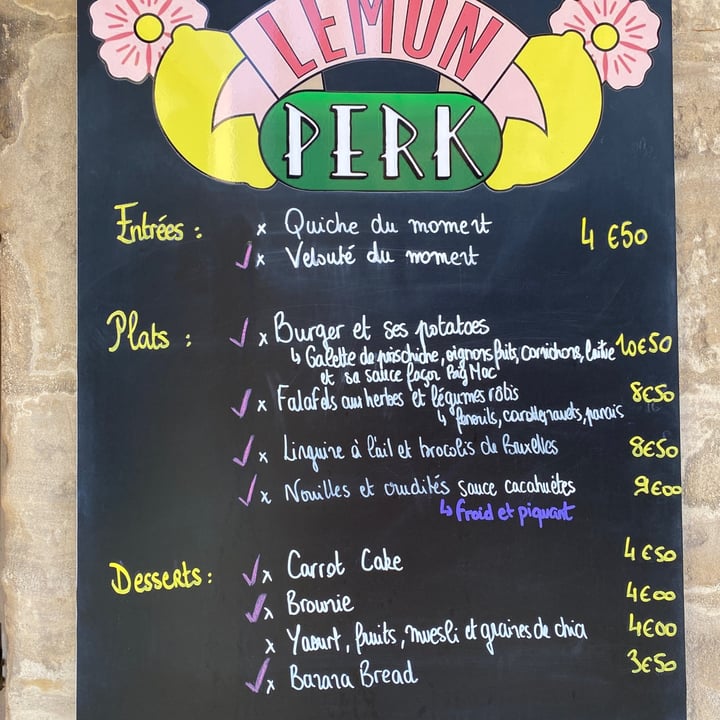 LEMON
PERK
Entrées :
x Quiche du moment
4 €50
x Velouté du moment
Plats :
x Burger et ses potatoes
↳ Galette de poischiche, oignons frits, cornichons, laitue 10€50
et sa sauce façon "Big Mac"
x Falafels aux herbes et légumes rôtis 8€50
↳ fenouils, carottes, navets, panais
x Linguine à l'ail et brocolis de Bruxelles 8€50
x Nouilles et crudités sauce cacahuètes 9€00
↳ froid et piquant
Desserts :
x Carrot Cake 4€50
x Brownie 4€00
x Yaourt, fruits, muesli et graines de chia 4€00
x Banana Bread 3€50